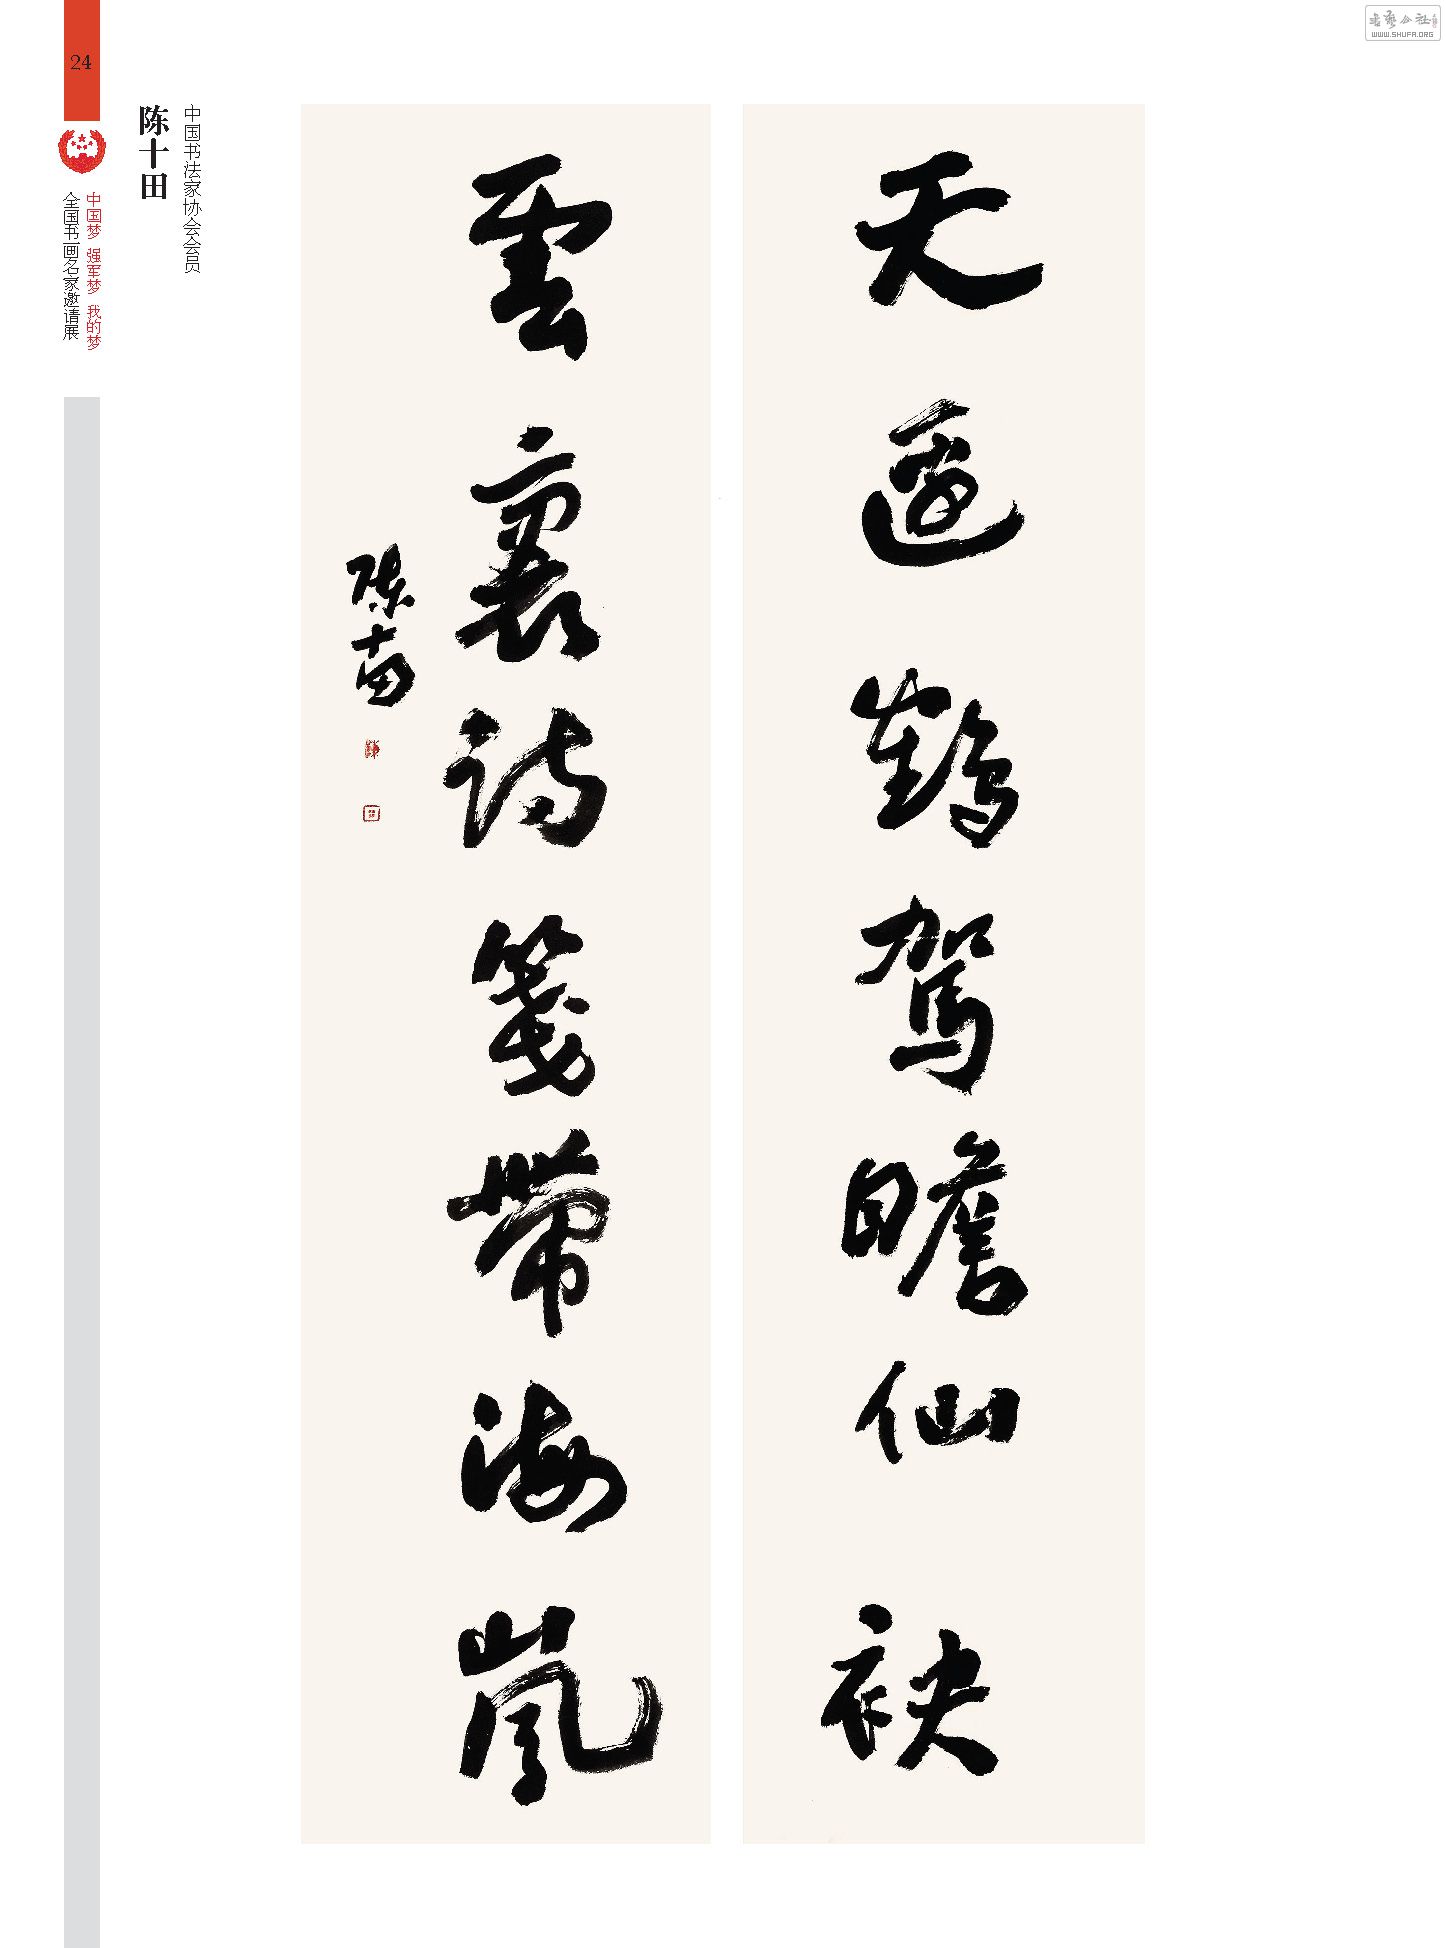 24
中国梦 强军梦 我的梦
全国书画名家邀请展
陈十田
中国书法家协会会员
天邊鶴駕瞻仙袂
雲裏詩箋帶海嵐
陈十田
WWW.SHUFA.ORG